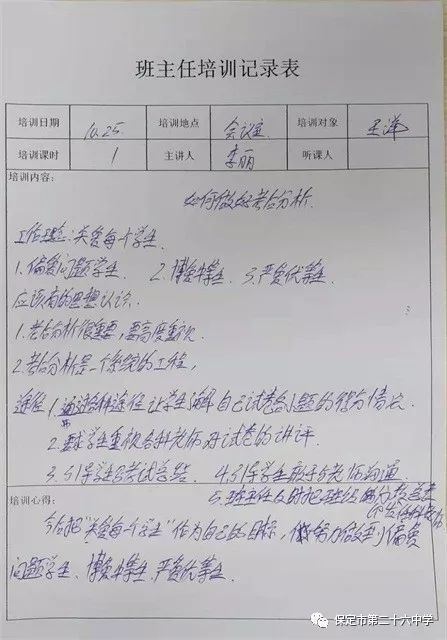 班主任培训记录表
培训日期 10.25. 培训地点 会议室 培训对象 王洋
培训课时 1 主讲人 李丽 听课人
培训内容:
如何做好考后分析.
工作理念:关爱每个学生.
1.偏爱问题学生. 2.博爱中等生. 3.严爱优等生.
应该有的思想认识.
1.考后分析很重要,要高度重视.
2.考后分析是一个系统的工程,
途径 1.通过各种途径让学生了解自己试卷各小题的得分情况.
2.要求学生重视各科老师对试卷的讲评.
3.引导学生写考试总结. 4.引导学生敢于与老师沟通
5.班主任及时把班级的
培训心得:
今后把"关爱每个学生"作为自己的目标, 努力做到偏爱
问题学生、博爱中等生、严爱优等生.
保定市第二十六中学